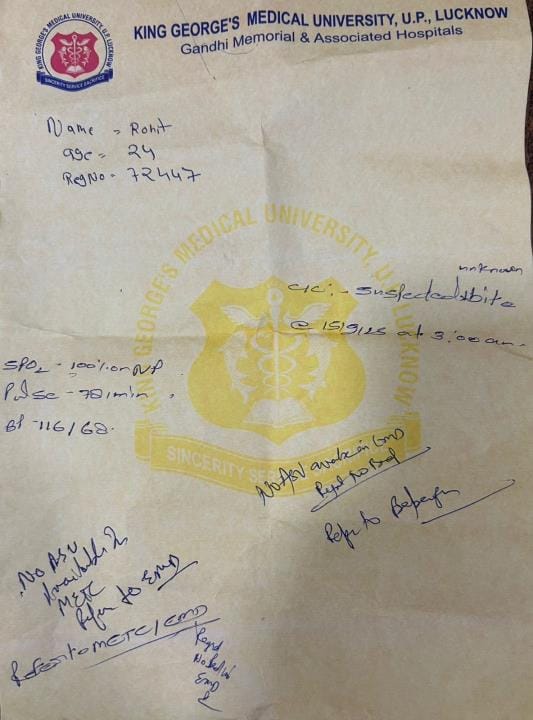 KING GEORGE'S MEDICAL UNIVERSITY, U.P., LUCKNOW
Gandhi Memorial & Associated Hospitals
KING GEORGE'S MEDICAL UNIVERSITY U.P. LUCKNOW
SINCERITY SERVICE SACRIFICE
Name = Rohit
age = 24
Reg No = 72447
KING GEORGE'S MEDICAL UNIVERSITY, U.P. LUCKNOW
unknown
c/c:- Suspected bite
@ 15/9/25 at 3:00 am.
SPO2 - 100% on
Pulse - 78/min
BP - 116/68.
SINCERITY
No ASV in EMD
No Bed
Refer to
No ASV
Available in
METC
Refer to EMD
Refer to METC/EMD
EMD